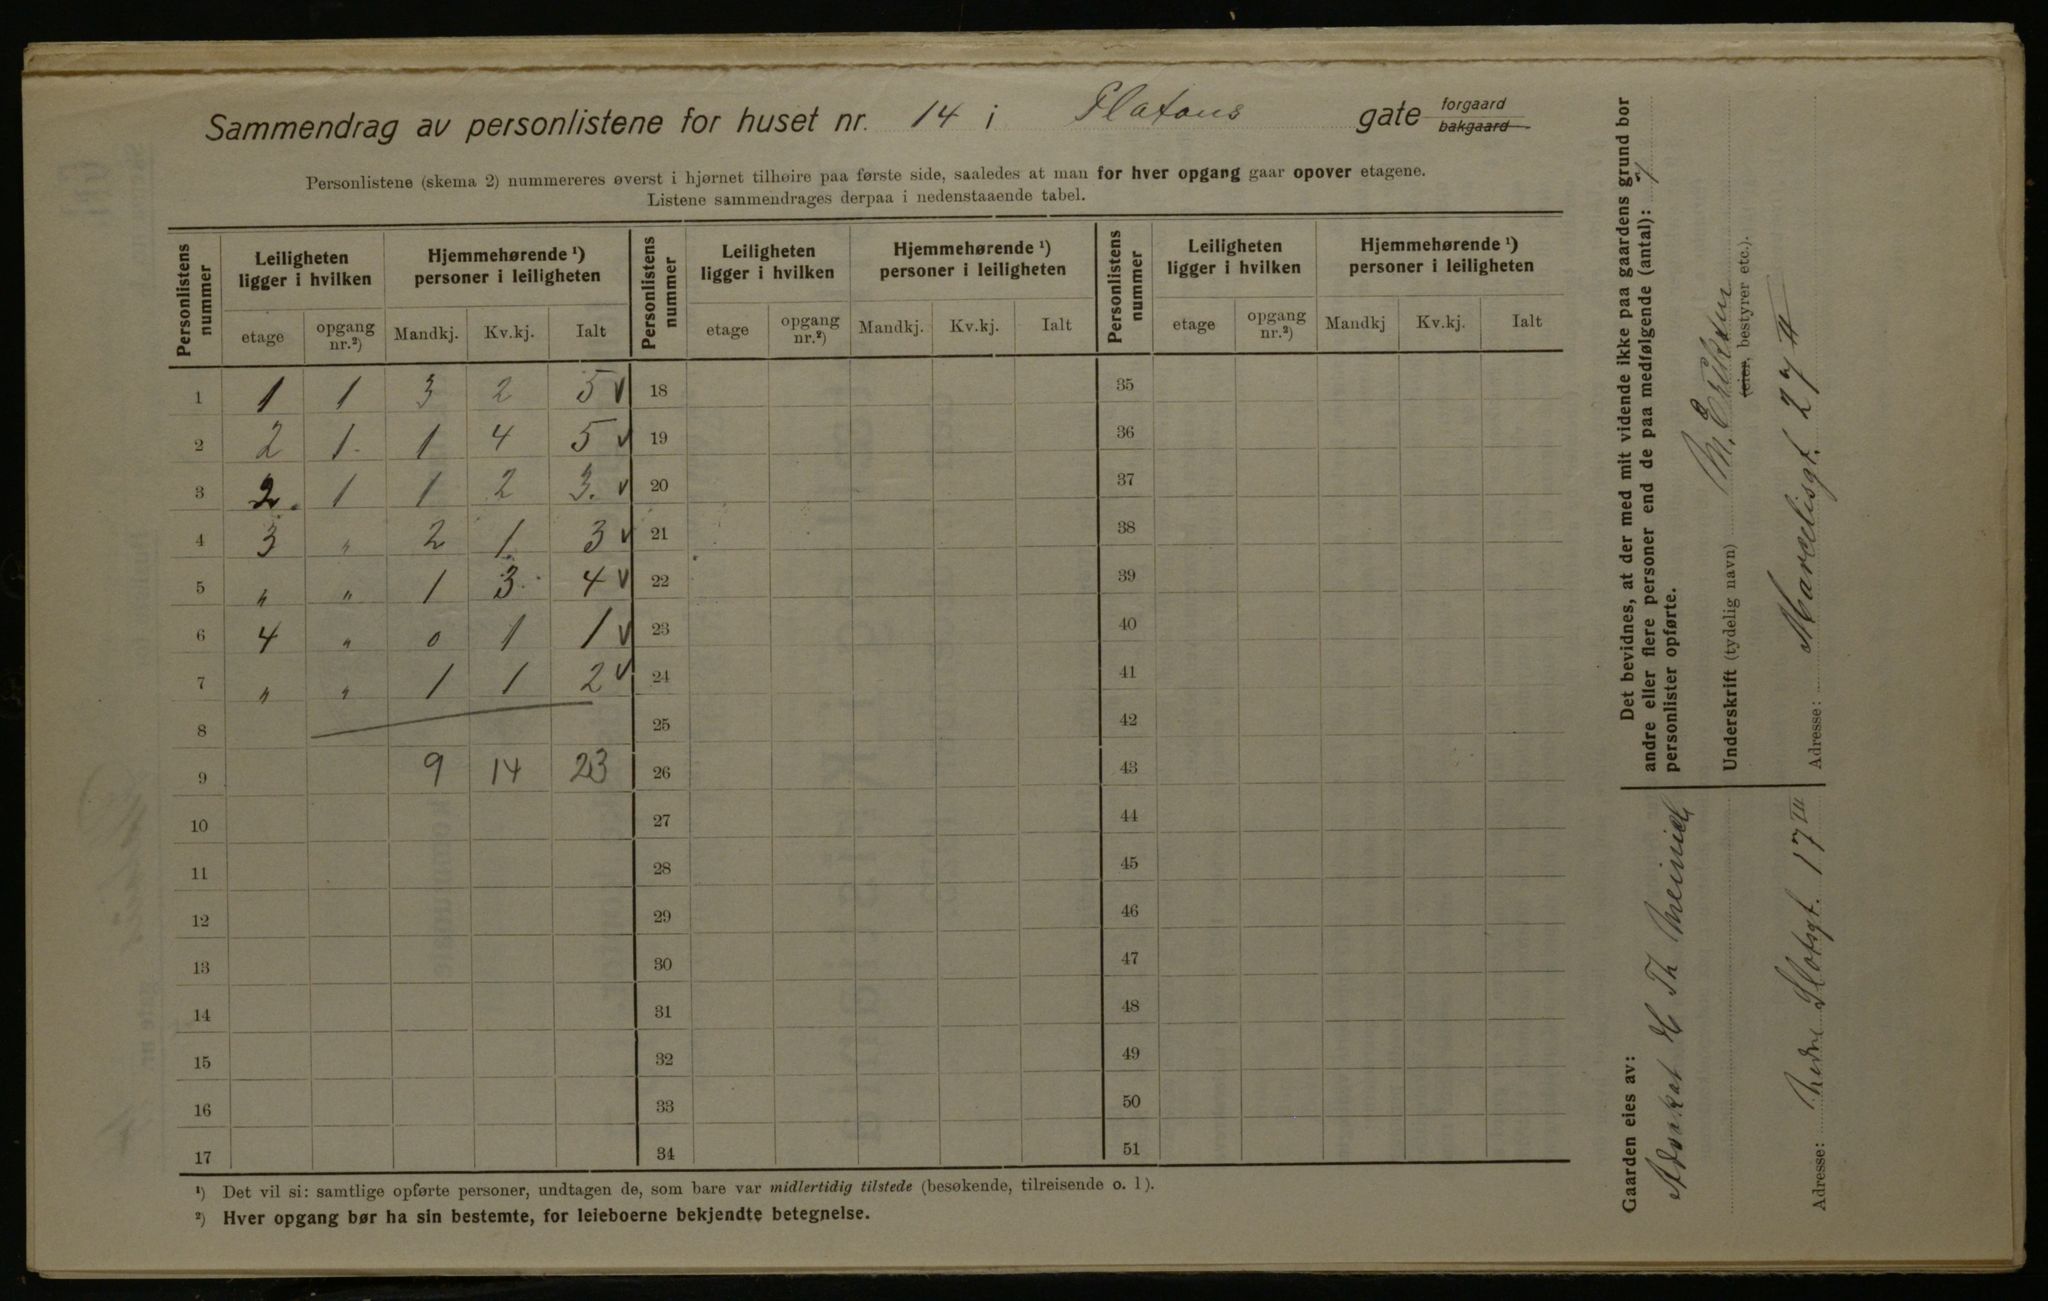 Sammendrag av personlistene for huset nr. 14 i Platous gate forgaard bakgaard
Personlistene (skema 2) nummereres øverst i hjørnet tilhøire paa første side, saaledes at man for hver opgang gaar opover etagene.
Listene sammendrages derpaa i nedenstaaende tabel.
Personlistens nummer | Leiligheten ligger i hvilken | Hjemmehørende ¹) personer i leiligheten | Personlistens nummer | Leiligheten ligger i hvilken | Hjemmehørende ¹) personer i leiligheten | Personlistens nummer | Leiligheten ligger i hvilken | Hjemmehørende ¹) personer i leiligheten
etage | opgang nr.²) | Mandkj. | Kv.kj. | Ialt | etage | opgang nr.²) | Mandkj. | Kv.kj. | Ialt | etage | opgang nr.²) | Mandkj | Kv.kj. | Ialt
1 | 1 | 1 | 3 | 2 | 5 ✓ | 18 | 35
2 | 2 | 1 | 1 | 4 | 5 ✓ | 19 | 36
3 | 2 | 1 | 1 | 2 | 3. ✓ | 20 | 37
4 | 3 | " | 2 | 1 | 3 ✓ | 21 | 38
5 | " | " | 1 | 3 | 4 ✓ | 22 | 39
6 | 4 | " | 0 | 1 | 1 ✓ | 23 | 40
7 | " | " | 1 | 1 | 2 ✓ | 24 | 41
8 | 25 | 42
9 | 9 | 14 | 23 | 26 | 43
10 | 27 | 44
11 | 28 | 45
12 | 29 | 46
13 | 30 | 47
14 | 31 | 48
15 | 32 | 49
16 | 33 | 50
17 | 34 | 51
¹) Det vil si: samtlige opførte personer, undtagen de, som bare var midlertidig tilstede (besøkende, tilreisende o. l).
²) Hver opgang bør ha sin bestemte, for leieboerne bekjendte betegnelse.
Det bevidnes, at der med mit vidende ikke paa gaardens grund bor
andre eller flere personer end de paa medfølgende (antal): 7
personlister opførte.
Underskrift (tydelig navn) M.
(eier, bestyrer etc.).
Adresse: Marcelisgt. 27 II
Gaarden eies av:
Advokat H Th Meinich
Adresse: Nedre Slotsgt. 17 III